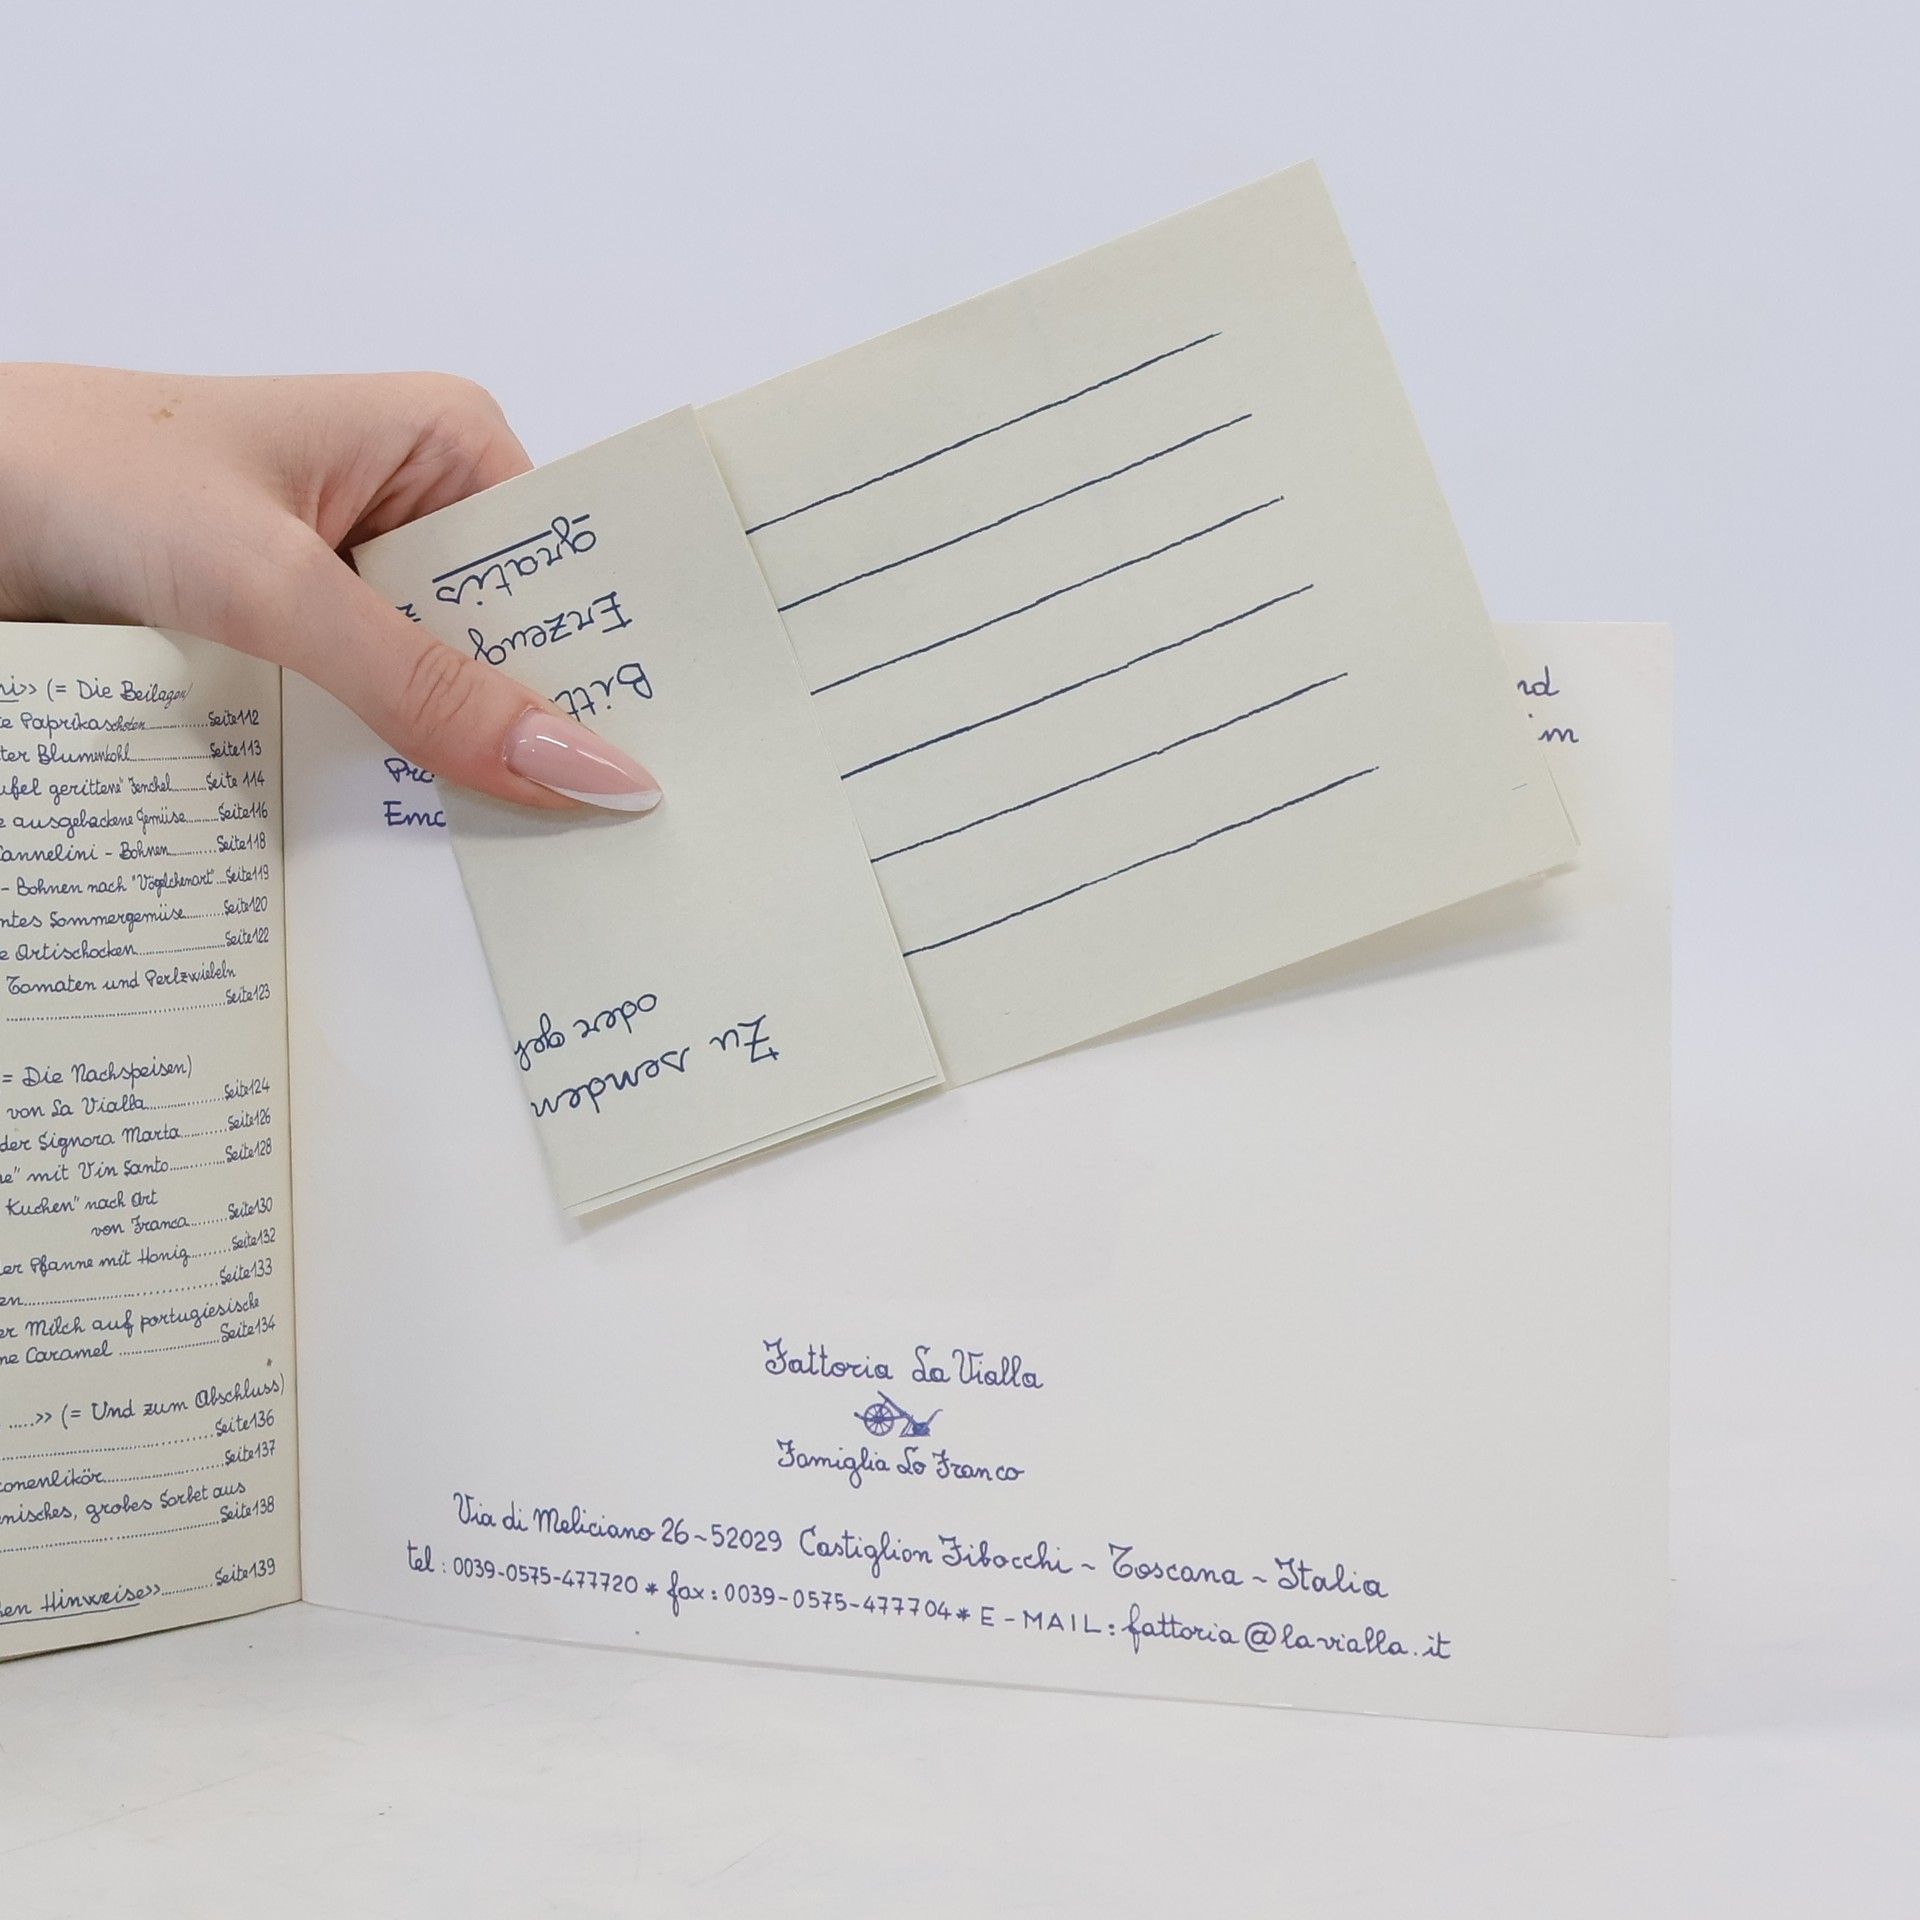 ni>> (= Die Beilagen)
te Paprikaschoten Seite 112
ter Blumenkohl Seite 113
ufel gerittene" Fenchel Seite 114
e ausgebackene Gemüse Seite 116
Cannelini - Bohnen Seite 118
- Bohnen nach "Vögelchenart" Seite 119
mtes Sommergemüse Seite 120
e Artischocken Seite 122
Tomaten und Perlzwiebeln
Seite 123
= Die Nachspeisen)
von La Vialla Seite 124
der Signora Marta Seite 126
ne" mit Vin Santo Seite 128
Kuchen" nach Art
von Franca Seite 130
er Pfanne mit Honig Seite 132
en Seite 133
er Milch auf portugiesische
me Caramel Seite 134
.....>> (= Und zum Abschluss)
Seite 136
onenlikör Seite 137
nisches, grobes Sorbet aus
Seite 138
hen Hinweise>> Seite 139
Zu senden
oder gef
Bitt
Erzeug
gratis
nd
im
Pro
Emc
Fattoria La Vialla
Famiglia Lo Franco
Via di Meliciano 26 ~ 52029 Castiglion Fibocchi ~ Toscana ~ Italia
tel : 0039-0575-477720 * fax : 0039-0575-477704 * E-MAIL : fattoria@lavialla.it